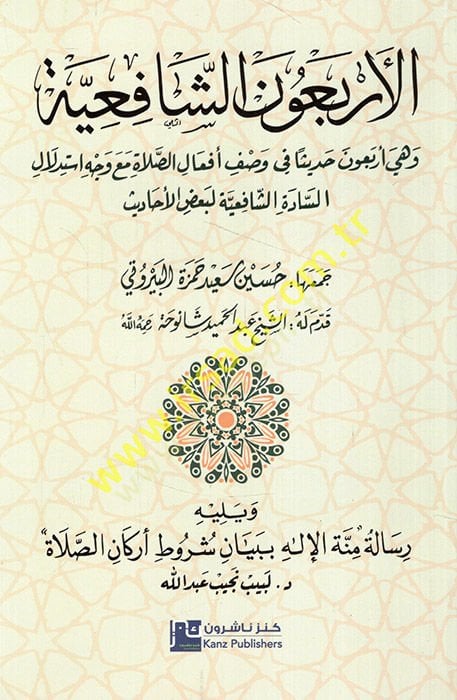 الأربعون الشافعية
وهي أربعون حديثا في وصف أفعال الصلاة مع وجه استدلال
السادة الشافعية لبعض الأحاديث
جمعها: حسين سعيد حمزة البيروتي
قدم له: الشيخ عبد الحميد شانوحة رحمه الله
ويليه
رسالة "منة الإله ببيان شروط أركان الصلاة"
د. لبيب نجيب عبد الله
كنز ناشرون
Kanz Publishers